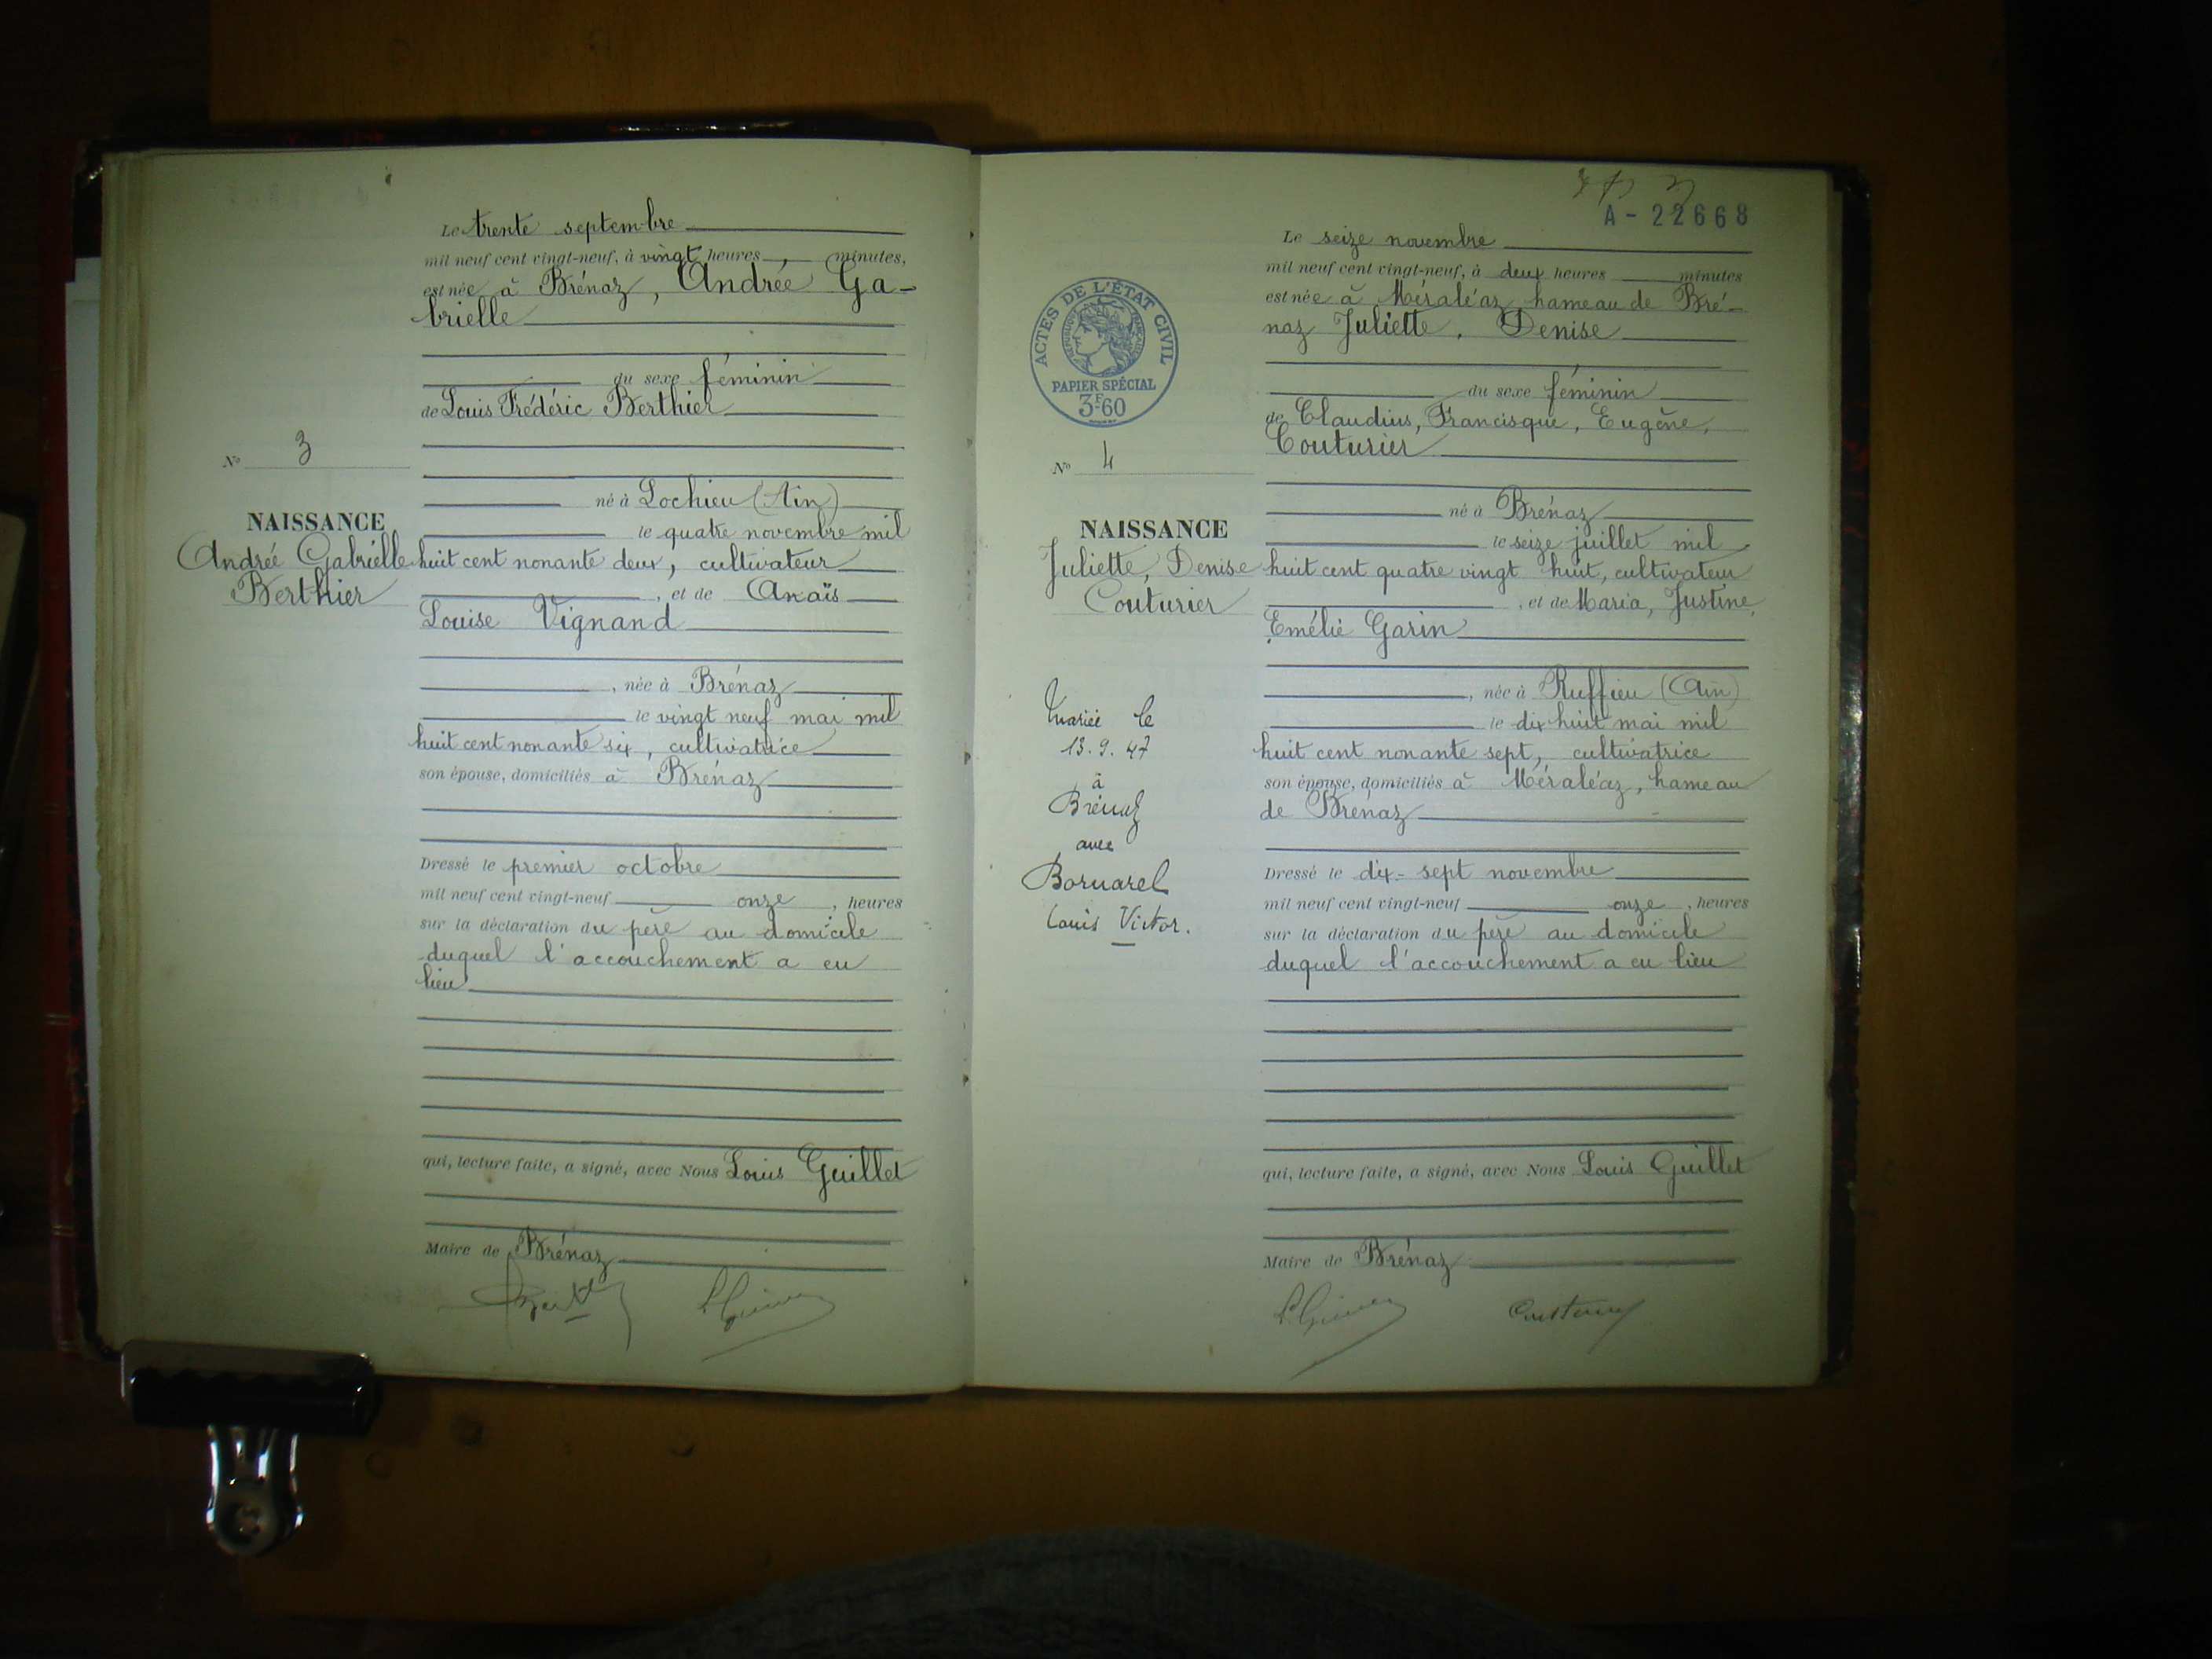 Le trente septembre
mil neuf cent vingt-neuf, à vingt heures, minutes,
est née à Brénaz, Andrée Ga-
brielle
du sexe féminin
de Louis Frédéric Berthier
N° 3
né à Lochieu (Ain)
NAISSANCE
le quatre novembre mil
Andrée Gabrielle
huit cent nonante deux, cultivateur
Berthier
, et de Anaïs
Louise Vignand
, née à Brénaz
le vingt neuf mai mil
huit cent nonante six, cultivatrice
son épouse, domiciliés à Brénaz
Dressé le premier octobre
mil neuf cent vingt-neuf onze, heures
sur la déclaration du père au domicile
duquel l'accouchement a eu
lieu
qui, lecture faite, a signé, avec Nous Louis Guillet
Maire de Brénaz
A - 22668
Le seize novembre
mil neuf cent vingt-neuf, à deux heures minutes
est née à Méraléaz hameau de Bré-
naz Juliette, Denise
ACTES DE L'ÉTAT CIVIL
RÉPUBLIQUE FRANÇAISE
PAPIER SPÉCIAL
3F60
du sexe féminin
de Claudius, Francisque, Eugène,
Couturier
N° 4
né à Brénaz
NAISSANCE
le seize juillet mil
Juliette, Denise
huit cent quatre vingt huit, cultivateur
Couturier
, et de Maria, Justine,
Emélie Garin
, née à Ruffieu (Ain)
le dix huit mai mil
huit cent nonante sept, cultivatrice
son épouse, domiciliés à Méraléaz, hameau
de Brénaz
Mariée le
13.9.47
à
Brénaz
avec
Bornarel
Louis Victor.
Dressé le dix-sept novembre
mil neuf cent vingt-neuf onze, heures
sur la déclaration du père au domicile
duquel l'accouchement a eu lieu
qui, lecture faite, a signé, avec Nous Louis Guillet
Maire de Brénaz